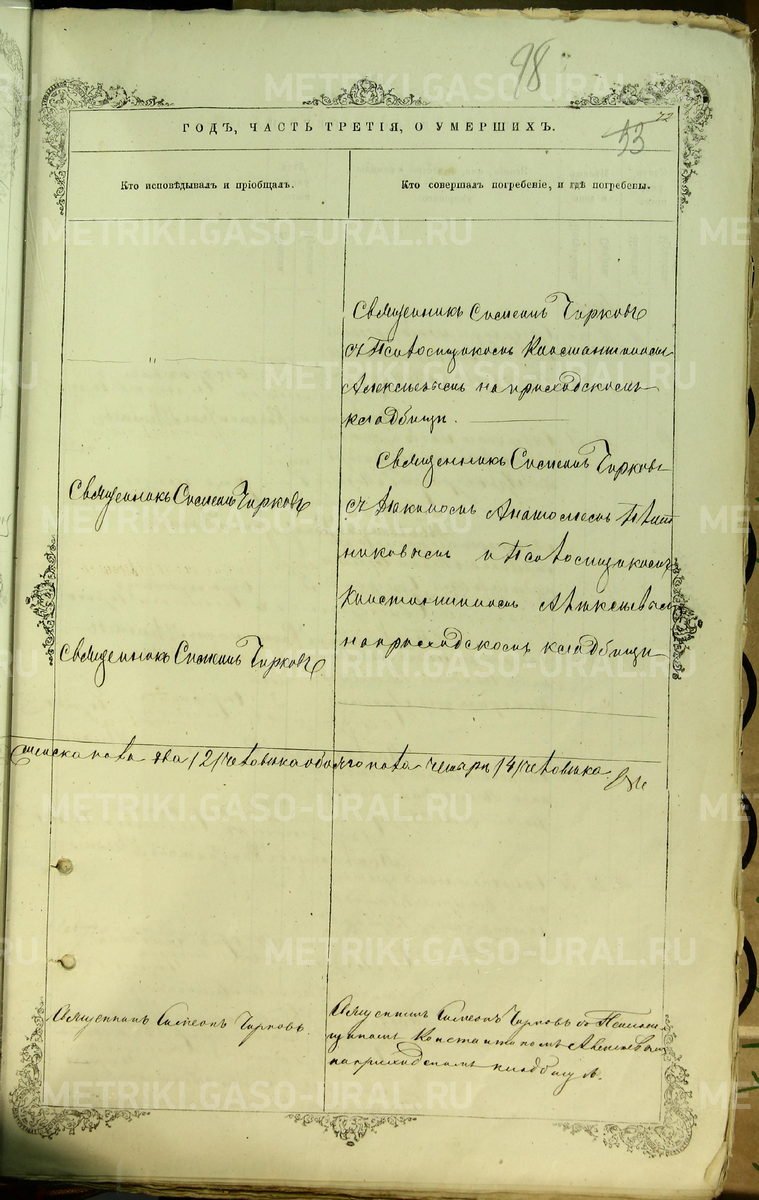 98
72
53
ГОДЪ, ЧАСТЬ ТРЕТІЯ, О УМЕРШИХЪ.
Кто исповѣдывалъ и пріобщалъ.
Кто совершалъ погребеніе, и гдѣ погребены.
Священникъ Симеонъ Чирковъ
съ Псаломщикомъ Константиномъ
Алексѣевымъ на приходскомъ
кладбищѣ.
Священникъ Симеонъ Чирковъ
Священникъ Симеонъ Чирковъ
съ Діакономъ
никовымъ и Псаломщикомъ
Константиномъ Алексѣевымъ
на приходскомъ кладбищѣ
Священникъ Симеонъ Чирковъ
женска пола два /2/ человѣка обоего пола четыри /4/ человѣка
Священникъ Симеонъ Чирковъ.
Священникъ Симеонъ Чирковъ съ
Константиномъ Алексѣевымъ
на приходскомъ кладбищѣ.
METRIKI.GASO-URAL.RU